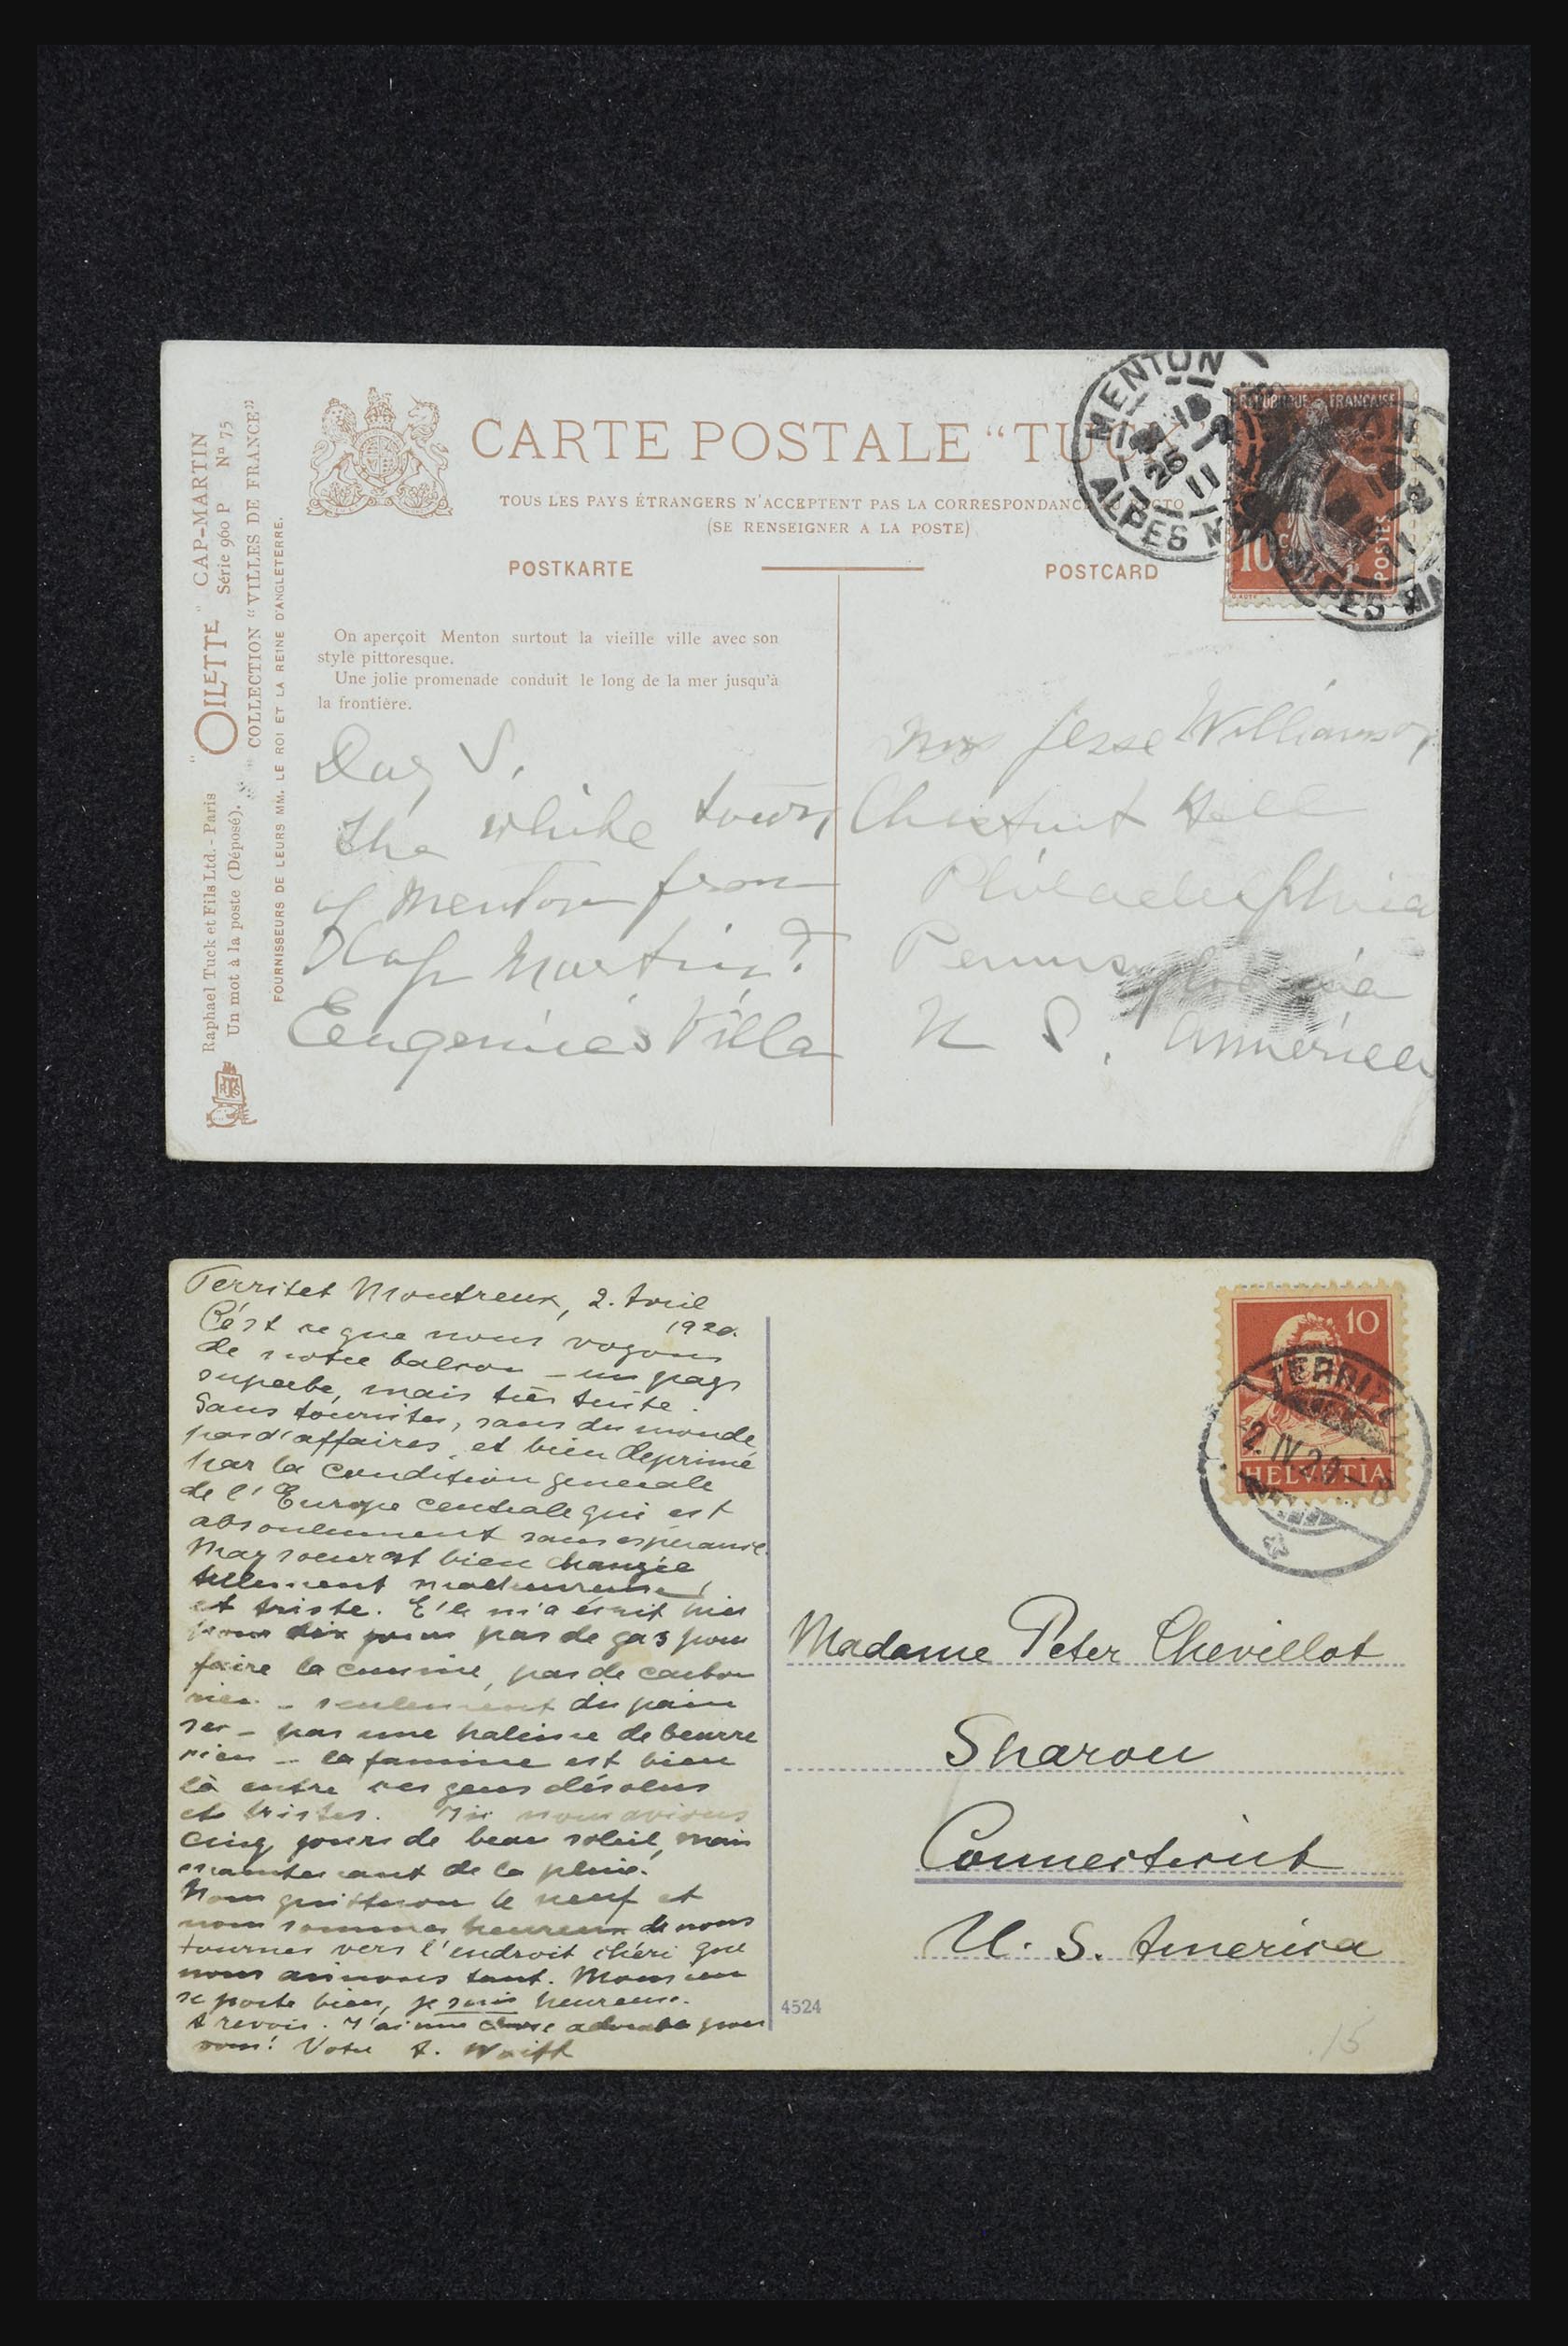 "OILETTE" CAP-MARTIN
Série 960 P Nº 75
COLLECTION "VILLES DE FRANCE"
Raphael Tuck et Fils Ltd. - Paris
Un mot à la poste (Déposé).
FOURNISSEURS DE LEURS MM. LE ROI ET LA REINE D'ANGLETERRE.
CARTE POSTALE "TUCK
TOUS LES PAYS ÉTRANGERS N'ACCEPTENT PAS LA CORRESPONDANCE
(SE RENSEIGNER A LA POSTE)
POSTKARTE
POSTCARD
MENTON
25
11
ALPES M
REPUBLIQUE FRANÇAISE
10c
POSTES
On aperçoit Menton surtout la vieille ville avec son
style pittoresque.
Une jolie promenade conduit le long de la mer jusqu'à
la frontière.
The white town
of Menton from
Cap Martin.
Eugenie's Villa
Mrs Jesse Williamson
Chestnut Hill
Philadelphia
Pennsylvania
U S. America
Territet Montreux, 2. Avril
1920.
C'est ce que nous voyons
de notre balcon – un pays
superbe, mais très triste.
Sans touristes, sans du monde
pas d'affaires, et bien deprimé
par la condition generale
de l'Europe centrale qui est
absoulument sans esperance.
May soeur est bien changée
tellement malheureuse
et triste. E'le m'a écrit hier
pour dix jours pas de gas pour
faire la cuisine, pas de carbon
rien – seulement du pain
sec – pas une
de beurre
rien – la famine est bien
là entre ces gens désolus
et tristes. Ici nous avions
cinq jours de beau soleil, mais
maintenant de la pluie.
Nous quitteron le neuf et
nous sommes heureux de nous
tourner vers l'endroit chéri que
nous aimons tant. Monsieur
se porte bien, je suis heureuse.
A revoir. J'ai une chose adorable pour
vous! Votre A.
HELVETIA
10
2. IV. 20
Madame Peter Chevillot
Sharon
Connecticut
U. S. America
4524
15